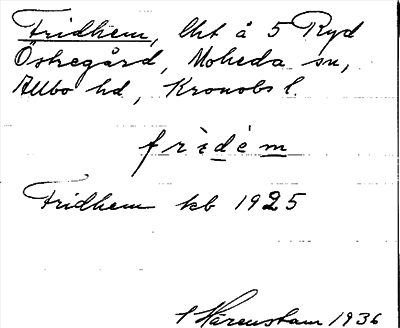 Fridhem, lht å 5 Ryd
Östregård, Moheda sn,
Allbo hd, Kronobs l.
frìdèm
Fridhem kb 1925
Härenstam 1936